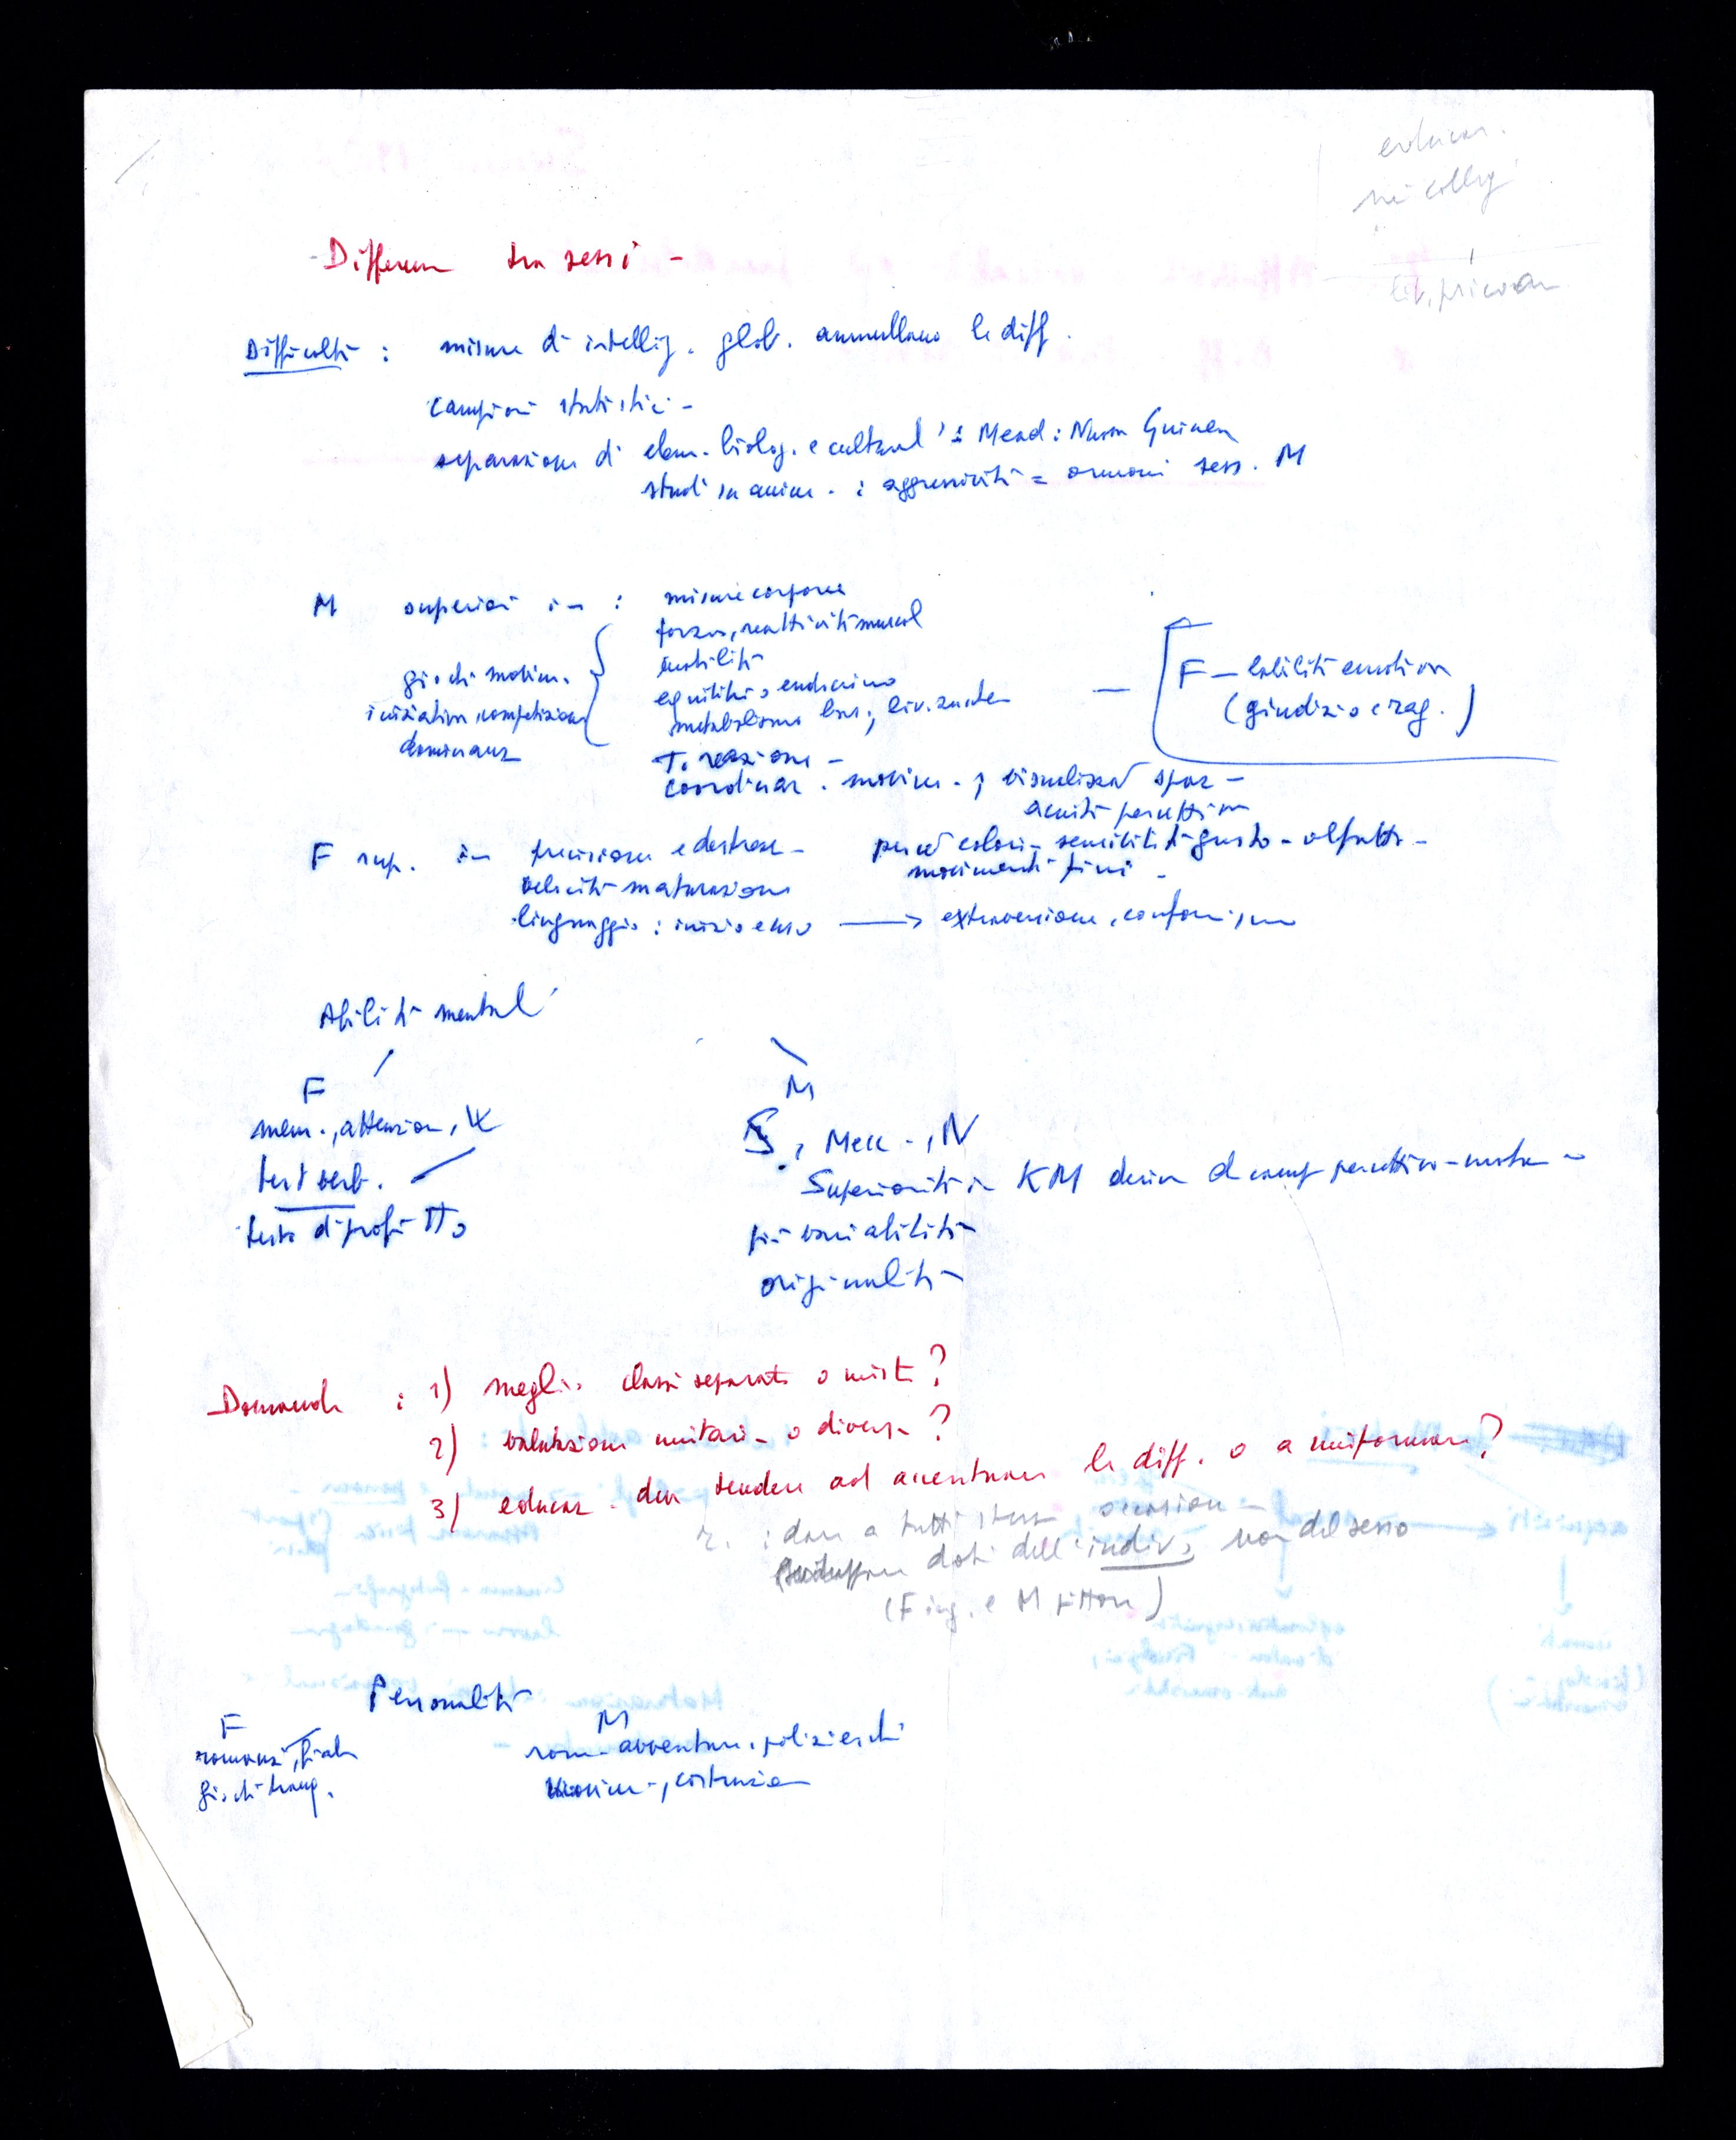 educaz.
nei collegi
- Differenze tra sessi -
Difficoltà : misure di intellig. glob. annullano le diff.
campioni statistici -
separazione di elem. biolog. e culturali : Mead : Nuova Guinea
studi su anim. : aggressività = ormoni sess. M
M superiori in : misure corporee
forza, reattività muscol
giochi movim. mobilità
iniziativa, competizione equilibrio endocrino
dominanza metabolismo bas., liv. zucch
T. reazione -
F - labilità emotiva
(giudizio e rag.)
coordinaz. movim. ; visualizzaz spaz -
acuità percettiva
F sup. in precisione e destrezza - percez colori - sensibilità gusto - olfatto -
movimenti fini -
velocità maturazione
linguaggio : inizio e uso → extraversione, conformismo
Abilità mentali
F M
mem., attenzione, S, Mecc., N
test verb. Superiorità in KM deriva da comp. percettivo-motor
test di profitto più variabilità
originalità
Domande : 1) meglio classi separate o miste ?
2) valutazione unitaria o diversa ?
3) educaz. deve tendere ad accentuare le diff. o a uniformare ?
r. : dare a tutti stesse occasioni -
sviluppare doti dell'indiv, non del sesso
(F ing. e M pittore)
Personalità
F M
romanzi, fiabe rom. avventure, polizieschi
giochi tranq. movim., costruzion